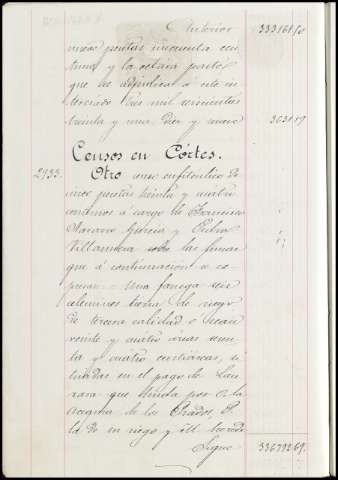 Anterior 33316150
nueve pesetas cincuenta cen
timos y la octava parte
que se adjudica a este in
teresado tres mil seiscientas
treinta y una diez y nueve 363119
Censos en Cortes.
2933. Otro censo enfiteutico de
cinco pesetas treinta y cuatro
centimos á cargo de Francisco
Navarro Garcia y Pedro
Villanueva sobre las fincas
que á continuacion se es-
presan = Una fanega seis
celemines tierra de riego
de tercera calidad ó sean
veinte y cuatro áreas
ta y cuatro centiáreas, si
tuadas en el pago de Lau
que linda por S. la
acequia de los Prados, P.
la de su riego y
Sigue 33679269.